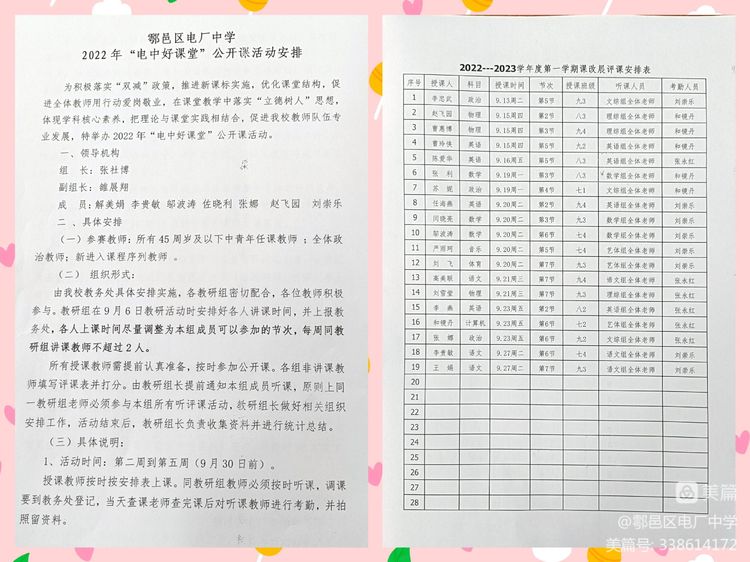 鄠邑区电厂中学
2022 年“电中好课堂”公开课活动安排
为积极落实“双减”政策，推进新课标实施，优化课堂结构，促
进全体教师用行动爱岗敬业，在课堂教学中落实“立德树人”思想，
体现学科核心素养，把理论与课堂实践相结合，促进我校教师队伍专
业发展，特举办 2022 年“电中好课堂”公开课活动。
一、领导机构
组 长：张社博
副组长：雒展翔
成 员：解美娟 李贵敏 邬波涛 佐晓利 张娜 赵飞园 刘崇乐
二、具体安排
（一）参赛教师：所有 45 周岁及以下中青年任课教师；全体政
治教师；新进入课程序列教师。
（二） 组织形式：
由我校教务处具体安排实施，各教研组密切配合，各位教师积极
参与。教研组在 9 月 6 日教研活动时安排好各人讲课时间，并上报教
务处，各人上课时间尽量调整为本组成员可以参加的节次，每周同教
研组讲课教师不超过 2 人。
所有授课教师需提前认真准备，按时参加公开课。各组非讲课教
师填写评课表并打分。由教研组长提前通知本组成员听课，原则上同
一教研组老师必须参与本组所有听评课活动，教研组长做好相关组织
安排工作，活动结束后，教研组长负责收集资料并进行统计总结。
（三）具体说明：
1、活动时间：第二周到第五周（9 月 30 日前）。
授课教师按时按安排表上课。同教研组教师必须按时听课，调课
要到教务处登记，当天查课老师查完课后对听课教师进行考勤，并拍
照留资料。
2022---2023学年度第一学期课改晨评课安排表
序号 授课人 科目 授课时间 节次 授课班级 听课人员 考勤人员
1 李忠武 政治 9.13周二 第5节 九3 文综组全体老师 刘崇乐
2 赵飞园 物理 9.15周四 第2节 八3 理综组全体老师 和镤丹
3 曹惠博 物理 9.15周四 第3节 九3 理综组全体老师 和镤丹
4 曹玲侠 英语 9.15周四 第4节 九2 英语组全体老师 和镤丹
5 陈爱华 英语 9.16周五 第5节 八3 英语组全体老师 张永红
6 张 利 数学 9.19周一 第3节 八3 数学组全体老师 和镤丹
7 苏 妮 政治 9.19周一 第4节 七1 文综组全体老师 和镤丹
8 任海燕 英语 9.20周二 第2节 九4 英语组全体老师 刘崇乐
9 闫晓苑 数学 9.20周二 第3节 九2 数学组全体老师 刘崇乐
10 邬波涛 数学 9.20周二 第4节 七1 数学组全体老师 刘崇乐
11 严丽珂 音乐 9.20周二 第5节 七4 艺体组全体老师 刘崇乐
12 刘 飞 体育 9.20周二 第7节 九3 艺体组全体老师 刘崇乐
13 高美联 语文 9.21周三 第7节 九4 语文组全体老师 张永红
14 刘雪莹 物理 9.21周三 第7节 九3 理综组全体老师 张永红
15 李 燕 英语 9.23周五 第2节 八4 英语组全体老师 张永红
16 和镤丹 计算机 9.23周五 第6节 七2 艺体组全体老师 张永红
17 张 娜 政治 9.23周五 第5节 九2 文综组全体老师 张永红
18 李贵敏 语文 9.27周二 第6节 七4 语文组全体老师 刘崇乐
19 王 娟 语文 9.27周二 第7节 八3 语文组全体老师 刘崇乐
20
21
22
23
24
25
26
27
28
美篇
@鄠邑区电厂中学
美篇号: 338614172